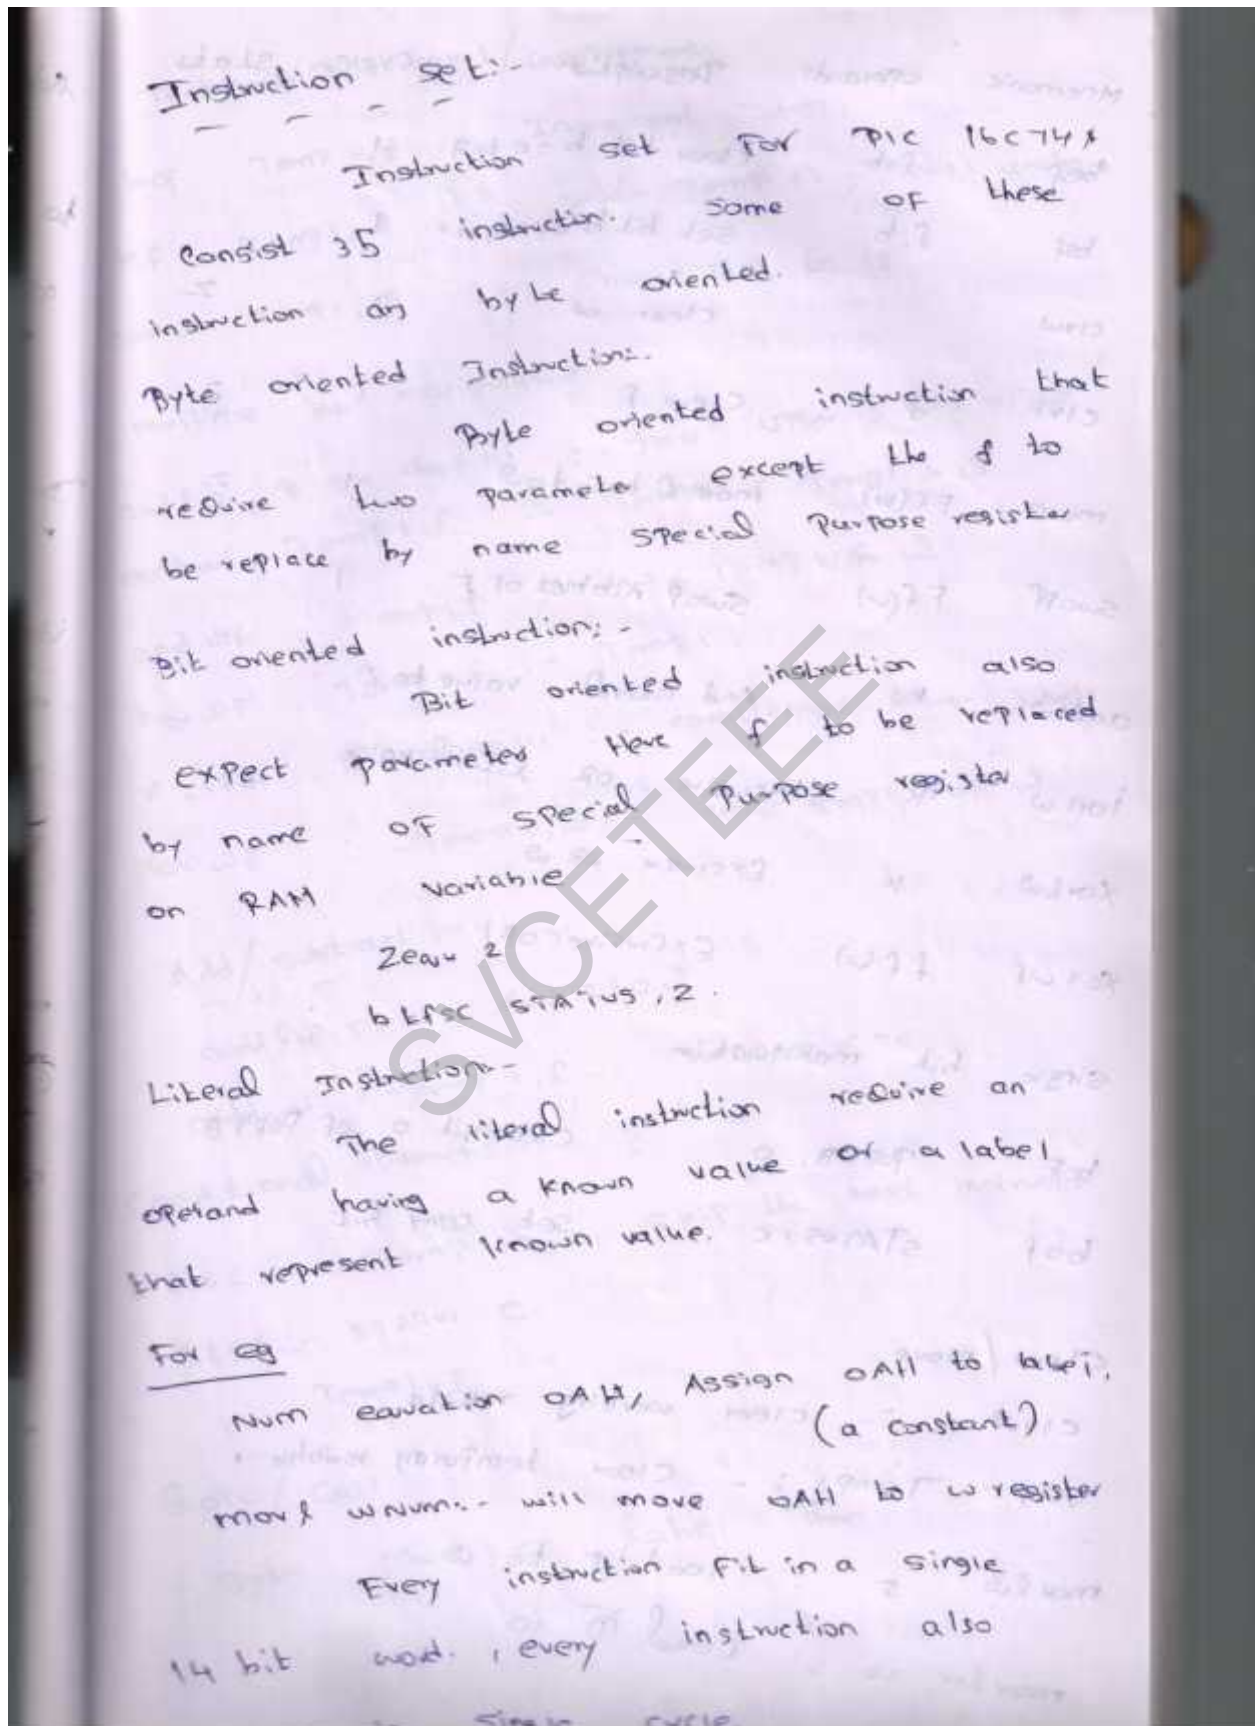 Instruction set:-
Instruction set For PIC 16C74A
Consist 35 instruction. Some OF these
instruction are byte oriented.
Byte oriented Instruction:-
Byte oriented instruction that
reQuire two parameter except the f to
be replace by name special Purpose register
Bit oriented instruction:-
Bit oriented instruction also
expect parameter Here f to be replaced
by name OF special Purpose register
on RAM variable
2
btfsc STATUS, Z.
Literal Instruction:-
The literal instruction reQuire an
operand having a known value or a label
that represent known value.
For eg
Num OAH, Assign OAH to label,
(a constant)
movl wNum:- will move OAH to w register
Every instruction Fit in a single
14 bit word. , every instruction also
cycle
SVCETEEE